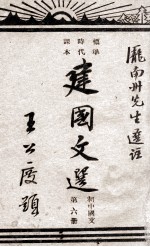 龎南州先生選注
標準
時代
課本
建國文選
初中國文
第六冊
王公度題